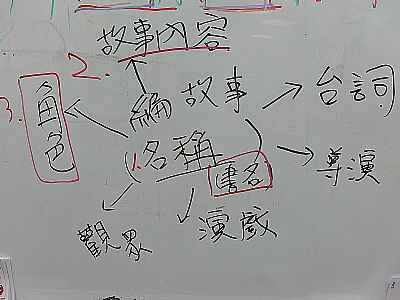 故事內容
2.
編故事
台詞
3.
角色
1.名稱
書名
導演
觀眾
演戲